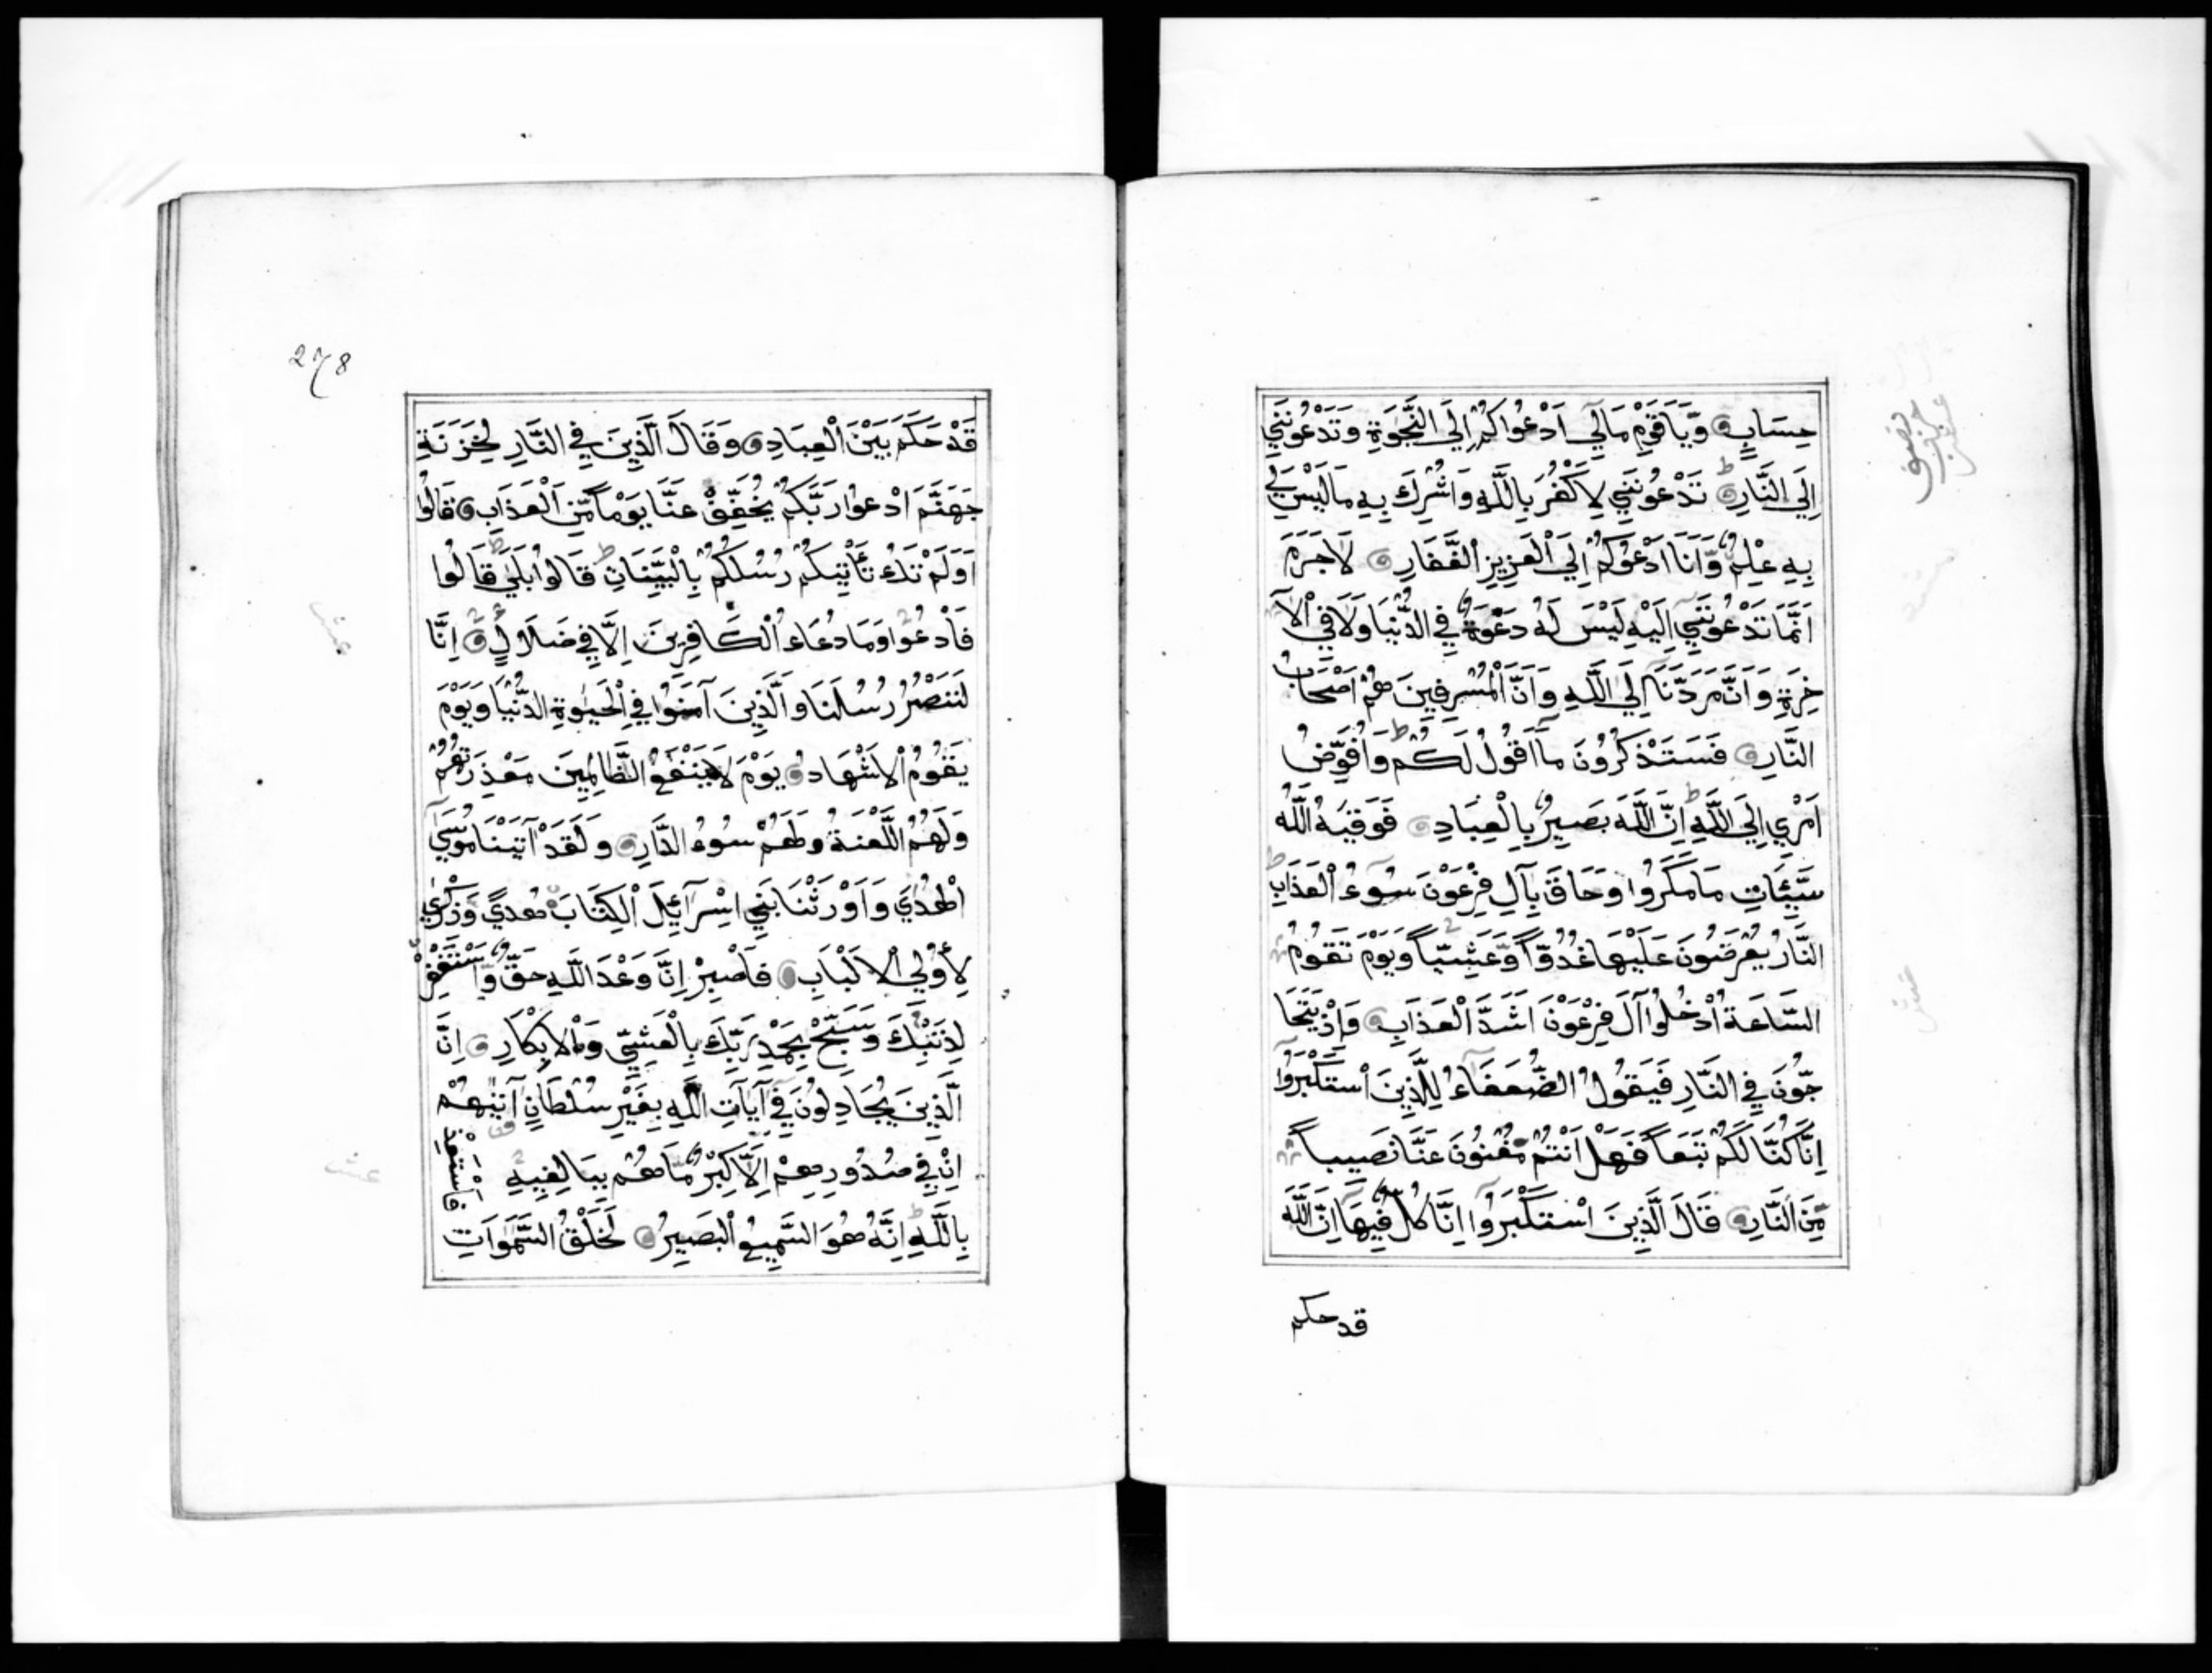 حِسَابٍ وَيَا قَوْمِ مَالِي اَدْعُوا كُمْ اِلَي النَّجٰوةِ وَتَدْعُونَنِي
اِلَي النَّارِ ط تَدْعُونَنِي لِاَكْفُرَ بِاللَّهِ وَاُشْرِكَ بِهِ مَا لَيْسَ لِي
بِهِ عِلْمٌ وَّاَنَا اَدْعُوكُمْ اِلَي الْعَزِيزِ الْغَفَّارِ لَاجَرَمَ
اَنَّمَا تَدْعُونَنِي اِلَيْهِ لَيْسَ لَهُ دَعْوَةٌ فِي الدُّنْيَا وَلَا فِي الْآ
خِرَةِ وَاَنَّ مَرَدَّنَا اِلَي اللَّهِ وَاَنَّ الْمُسْرِفِينَ هُمْ اَصْحَابُ
النَّارِ فَسَتَذْكُرُونَ مَا اَقُولُ لَكُمْ ط وَاُفَوِّضُ
اَمْرِي اِلَي اللَّهِ ط اِنَّ اللَّهَ بَصِيرٌ بِالْعِبَادِ فَوَقٰيهُ اللَّهُ
سَيِّئَاتِ مَا مَكَرُوا وَحَاقَ بِآلِ فِرْعَوْنَ سُوءُ الْعَذَابِ ط
النَّارُ يُعْرَضُونَ عَلَيْهَا غُدُوّاً وَّعَشِيّاً وَيَوْمَ تَقُومُ
السَّاعَةُ اُدْخُلُوا آلَ فِرْعَوْنَ اَشَدَّ الْعَذَابِ وَاِذْ يَتَحَا
جُّونَ فِي النَّارِ فَيَقُولُ الضُّعَفَاءُ لِلَّذِينَ اسْتَكْبَرُوا
اِنَّا كُنَّا لَكُمْ تَبَعاً فَهَلْ اَنْتُمْ مُغْنُونَ عَنَّا نَصِيباً
مِّنَ النَّارِ قَالَ الَّذِينَ اسْتَكْبَرُوا اِنَّا كُلٌّ فِيهَا اِنَّ اللَّهَ
قد حكم
نصف
حزب
278
قَدْ حَكَمَ بَيْنَ الْعِبَادِ وَقَالَ الَّذِينَ فِي النَّارِ لِخَزَنَةِ
جَهَنَّمَ ادْعُوا رَبَّكُمْ يُخَفِّفْ عَنَّا يَوْماً مِّنَ الْعَذَابِ قَالُوا
اَوَلَمْ تَكُ تَأْتِيكُمْ رُسُلُكُمْ بِالْبَيِّنَاتِ ط قَالُوا بَلَي ط قَالُوا
فَادْعُوا وَمَا دُعَاءُ الْكَافِرِينَ اِلَّا فِي ضَلَالٍ اِنَّا
لَنَنْصُرُ رُسُلَنَا وَالَّذِينَ آمَنُوا فِي الْحَيٰوةِ الدُّنْيَا وَيَوْمَ
يَقُومُ الْاَشْهَادُ يَوْمَ لَا يَنْفَعُ الظَّالِمِينَ مَعْذِرَتُهُمْ
وَلَهُمُ اللَّعْنَةُ وَلَهُمْ سُوءُ الدَّارِ وَلَقَدْ آتَيْنَا مُوسَيٰ
الْهُدٰي وَاَوْرَثْنَا بَنِي اِسْرَآئِيلَ الْكِتَابَ هُديً وَذِكْرٰي
لِأُولِي الْاَلْبَابِ فَاصْبِرْ اِنَّ وَعْدَ اللَّهِ حَقٌّ وَّاسْتَغْفِرْ
لِذَنْبِكَ وَسَبِّحْ بِحَمْدِ رَبِّكَ بِالْعَشِيِّ وَالْاِبْكَارِ اِنَّ
الَّذِينَ يُجَادِلُونَ فِي آيَاتِ اللَّهِ بِغَيْرِ سُلْطَانٍ آتٰيهُمْ
اِنْ فِي صُدُورِهِمْ اِلَّا كِبْرٌ مَّا هُمْ بِبَالِغِيهِ فَاسْتَعِذْ
بِاللَّهِ ط اِنَّهُ هُوَ السَّمِيعُ الْبَصِيرُ لَخَلْقُ السَّمٰوَاتِ
عشر
عشر